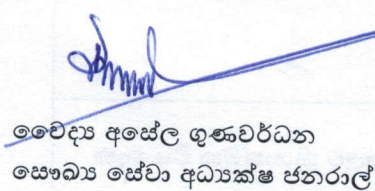 වෛද්‍ය අසේල ගුණවර්ධන
සෞඛ්‍ය සේවා අධ්‍යක්ෂ ජනරාල්